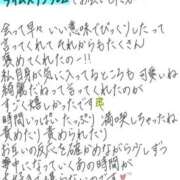 会って早々 いい意味でびっくりしたって
言ってくれて たれからもたくさん
褒めてくれたの―!!
私自身が気に入ってるところも 可愛いね
綺麗だねって言ってくれたのが
すごく嬉しかったです
時間いっぱい たっぷり 満喫しちゃったね
責めたり 責められたり
お互いの反応を確かめながら少しずつ
夢中になっていくあの時間が